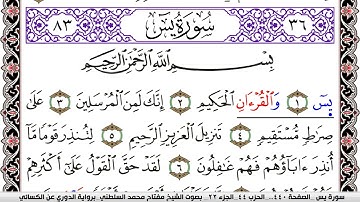 ٣٦ سُورَةُ يسٓ ٨٣
بِسْمِ ٱللَّهِ ٱلرَّحْمَٰنِ ٱلرَّحِيمِ
يسٓ ١ وَٱلْقُرْءَانِ ٱلْحَكِيمِ ٢ إِنَّكَ لَمِنَ ٱلْمُرْسَلِينَ ٣ عَلَىٰ
صِرَٰطٍ مُّسْتَقِيمٍ ٤ تَنزِيلَ ٱلْعَزِيزِ ٱلرَّحِيمِ ٥ لِتُنذِرَ قَوْمًا مَّآ
أُنذِرَ ءَابَآؤُهُمْ فَهُمْ غَٰفِلُونَ ٦ لَقَدْ حَقَّ ٱلْقَوْلُ عَلَىٰٓ أَكْثَرِهِمْ
سورة يس _الصفحة ٤٤٠_ الحزب ٤٤_الجزء ٢٢_ بصوت الشيخ مفتاح محمد السلطني _برواية الدوري عن الكسائي